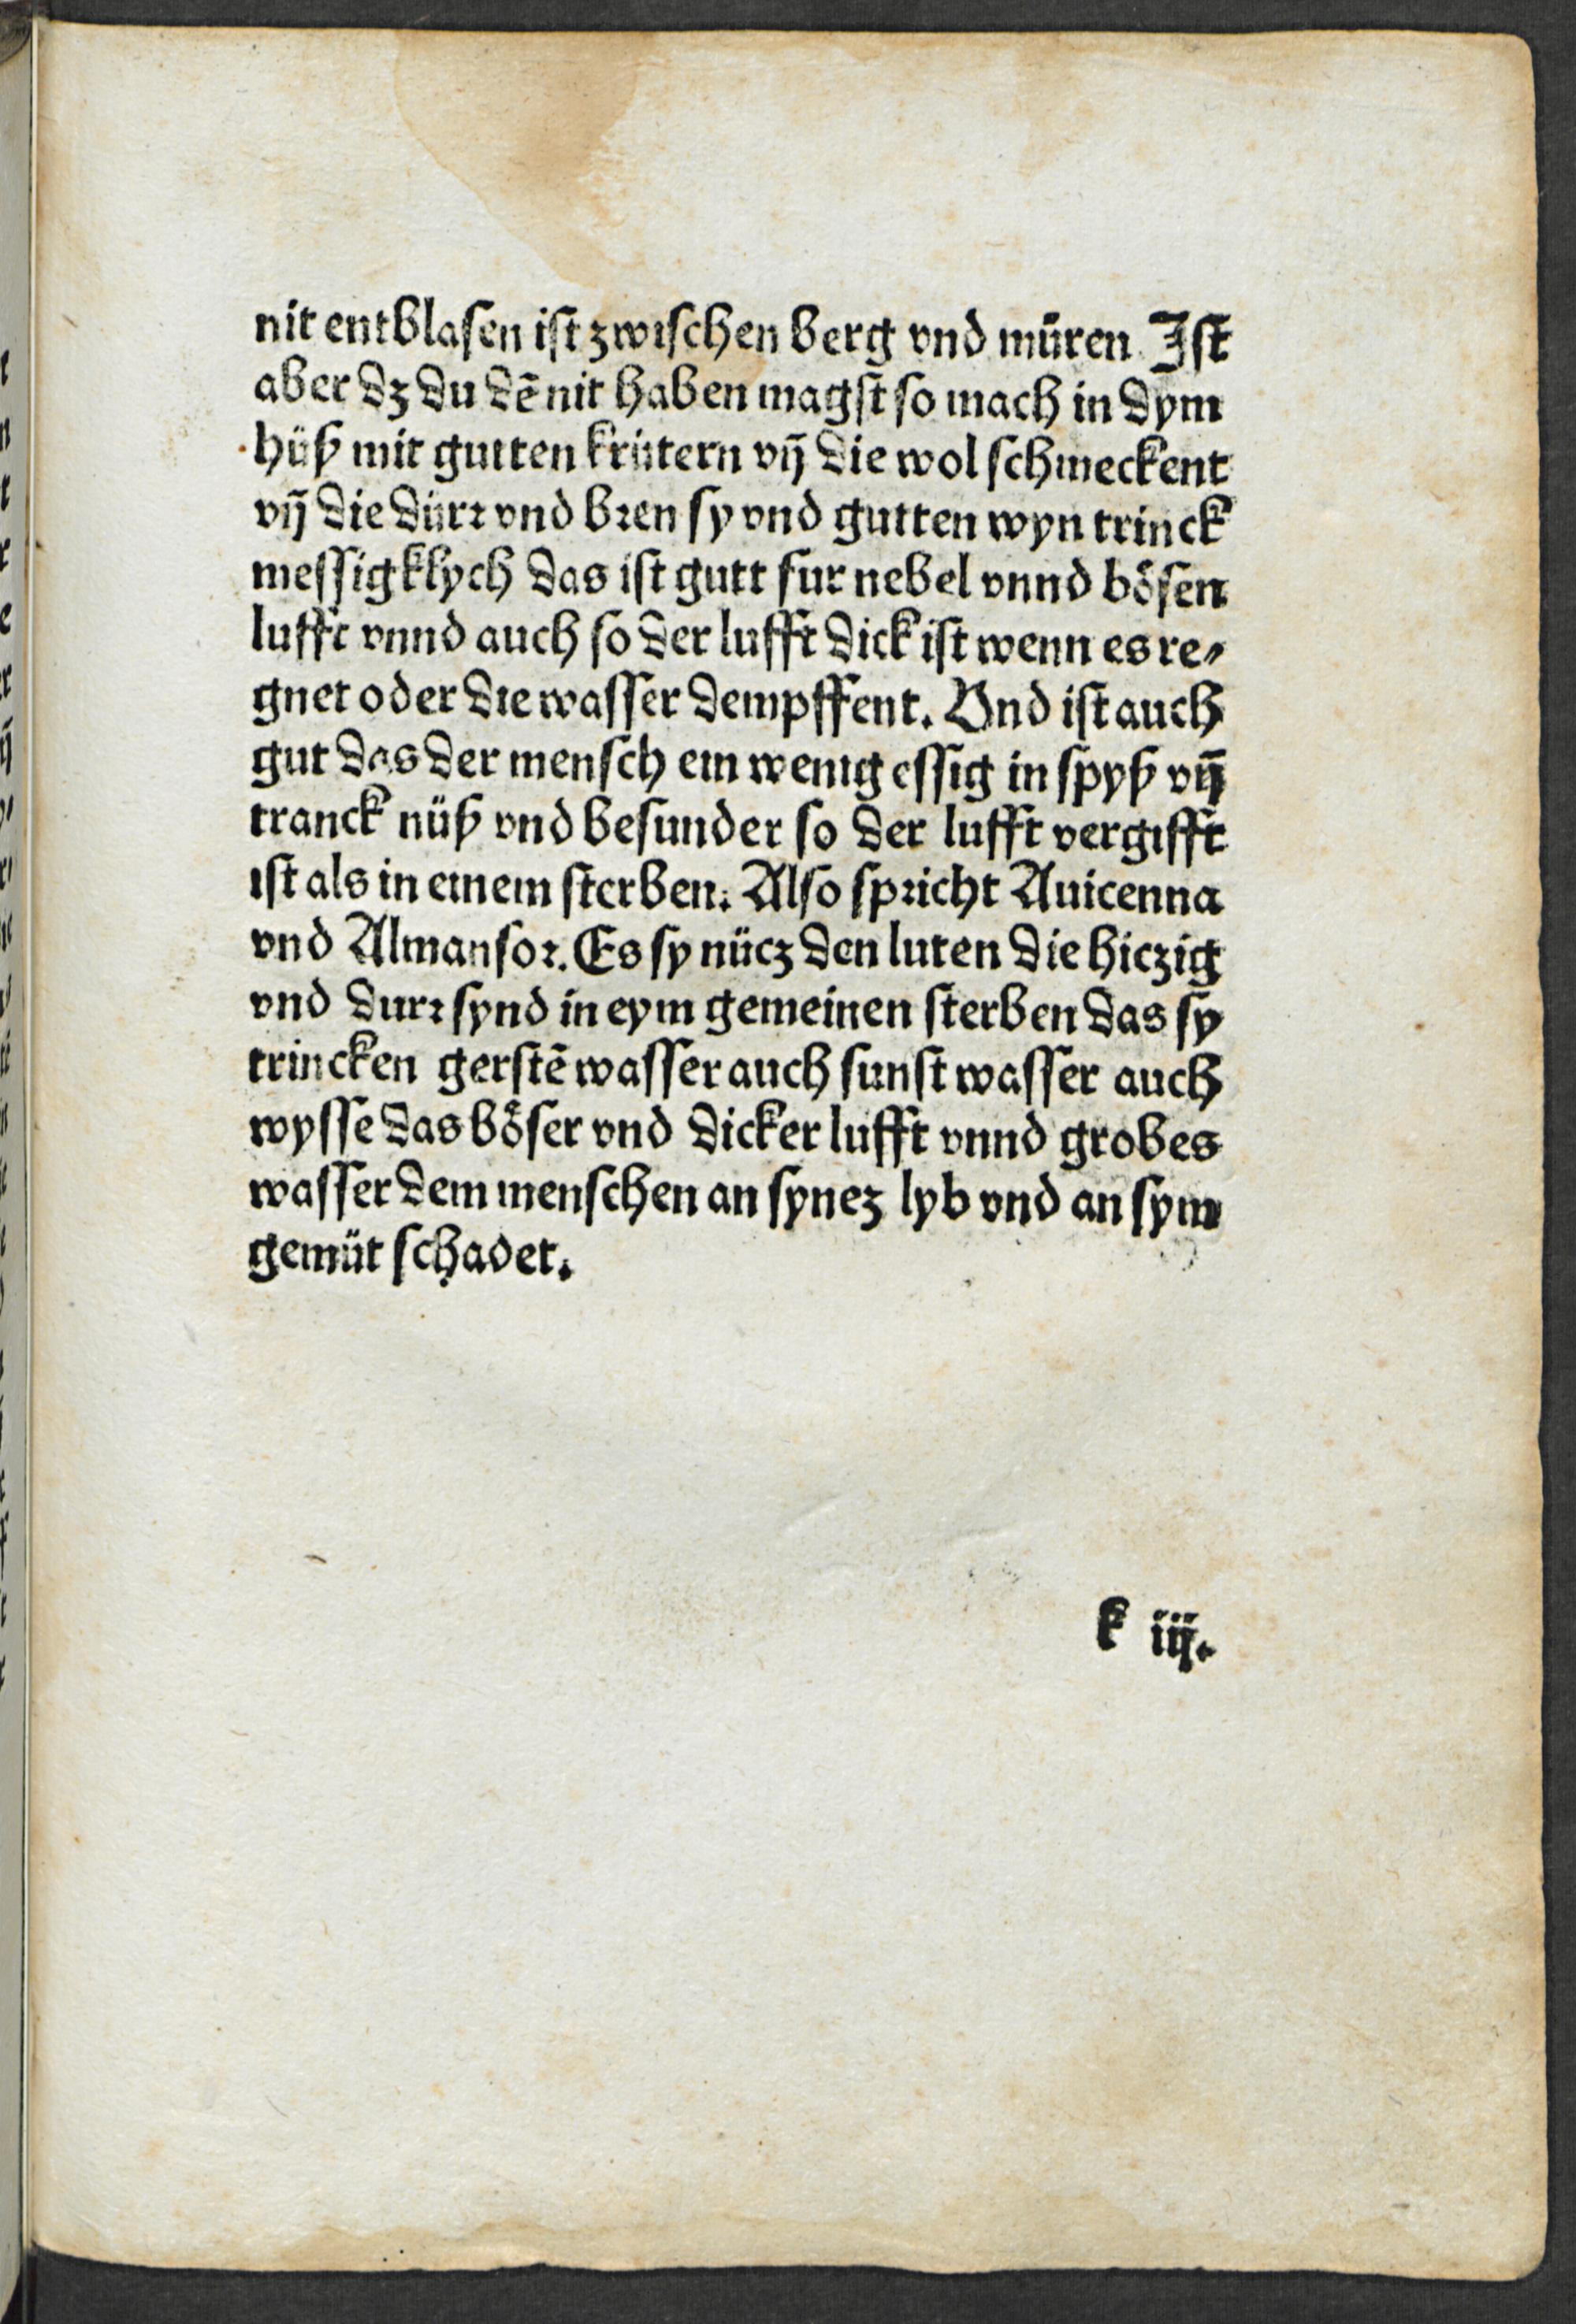 nit entblasen ist zwischen berg vnd müren Ist
aber dz du dē nit haben magst so mach in dym
hüß mit gutten krütern vñ die wol schmeckent
vñ die dürꝛ vnd bꝛen sy vnd gutten wyn trinck
messigklych das ist gutt fur nebel vnnd bösen
lufft vnnd auch so der lufft dick ist wenn es re⸗
gnet oder die wasser dempffent. Vnd ist auch
gut das der mensch ein wenig essig in spyß vñ
tranck nüß vnd besunder so der lufft vergifft
ist als in einem sterben. Also spꝛicht Auicenna
vnd Almansoꝛ. Es sy nücz den luten die hiczig
vnd durꝛ synd in eym gemeinen sterben das sy
trincken gerstē wasser auch sunst wasser auch
wysse das böser vnd dicker lufft vnnd grobes
wasser dem menschen an synez lyb vnd an sym
gemüt schadet.
k iij.